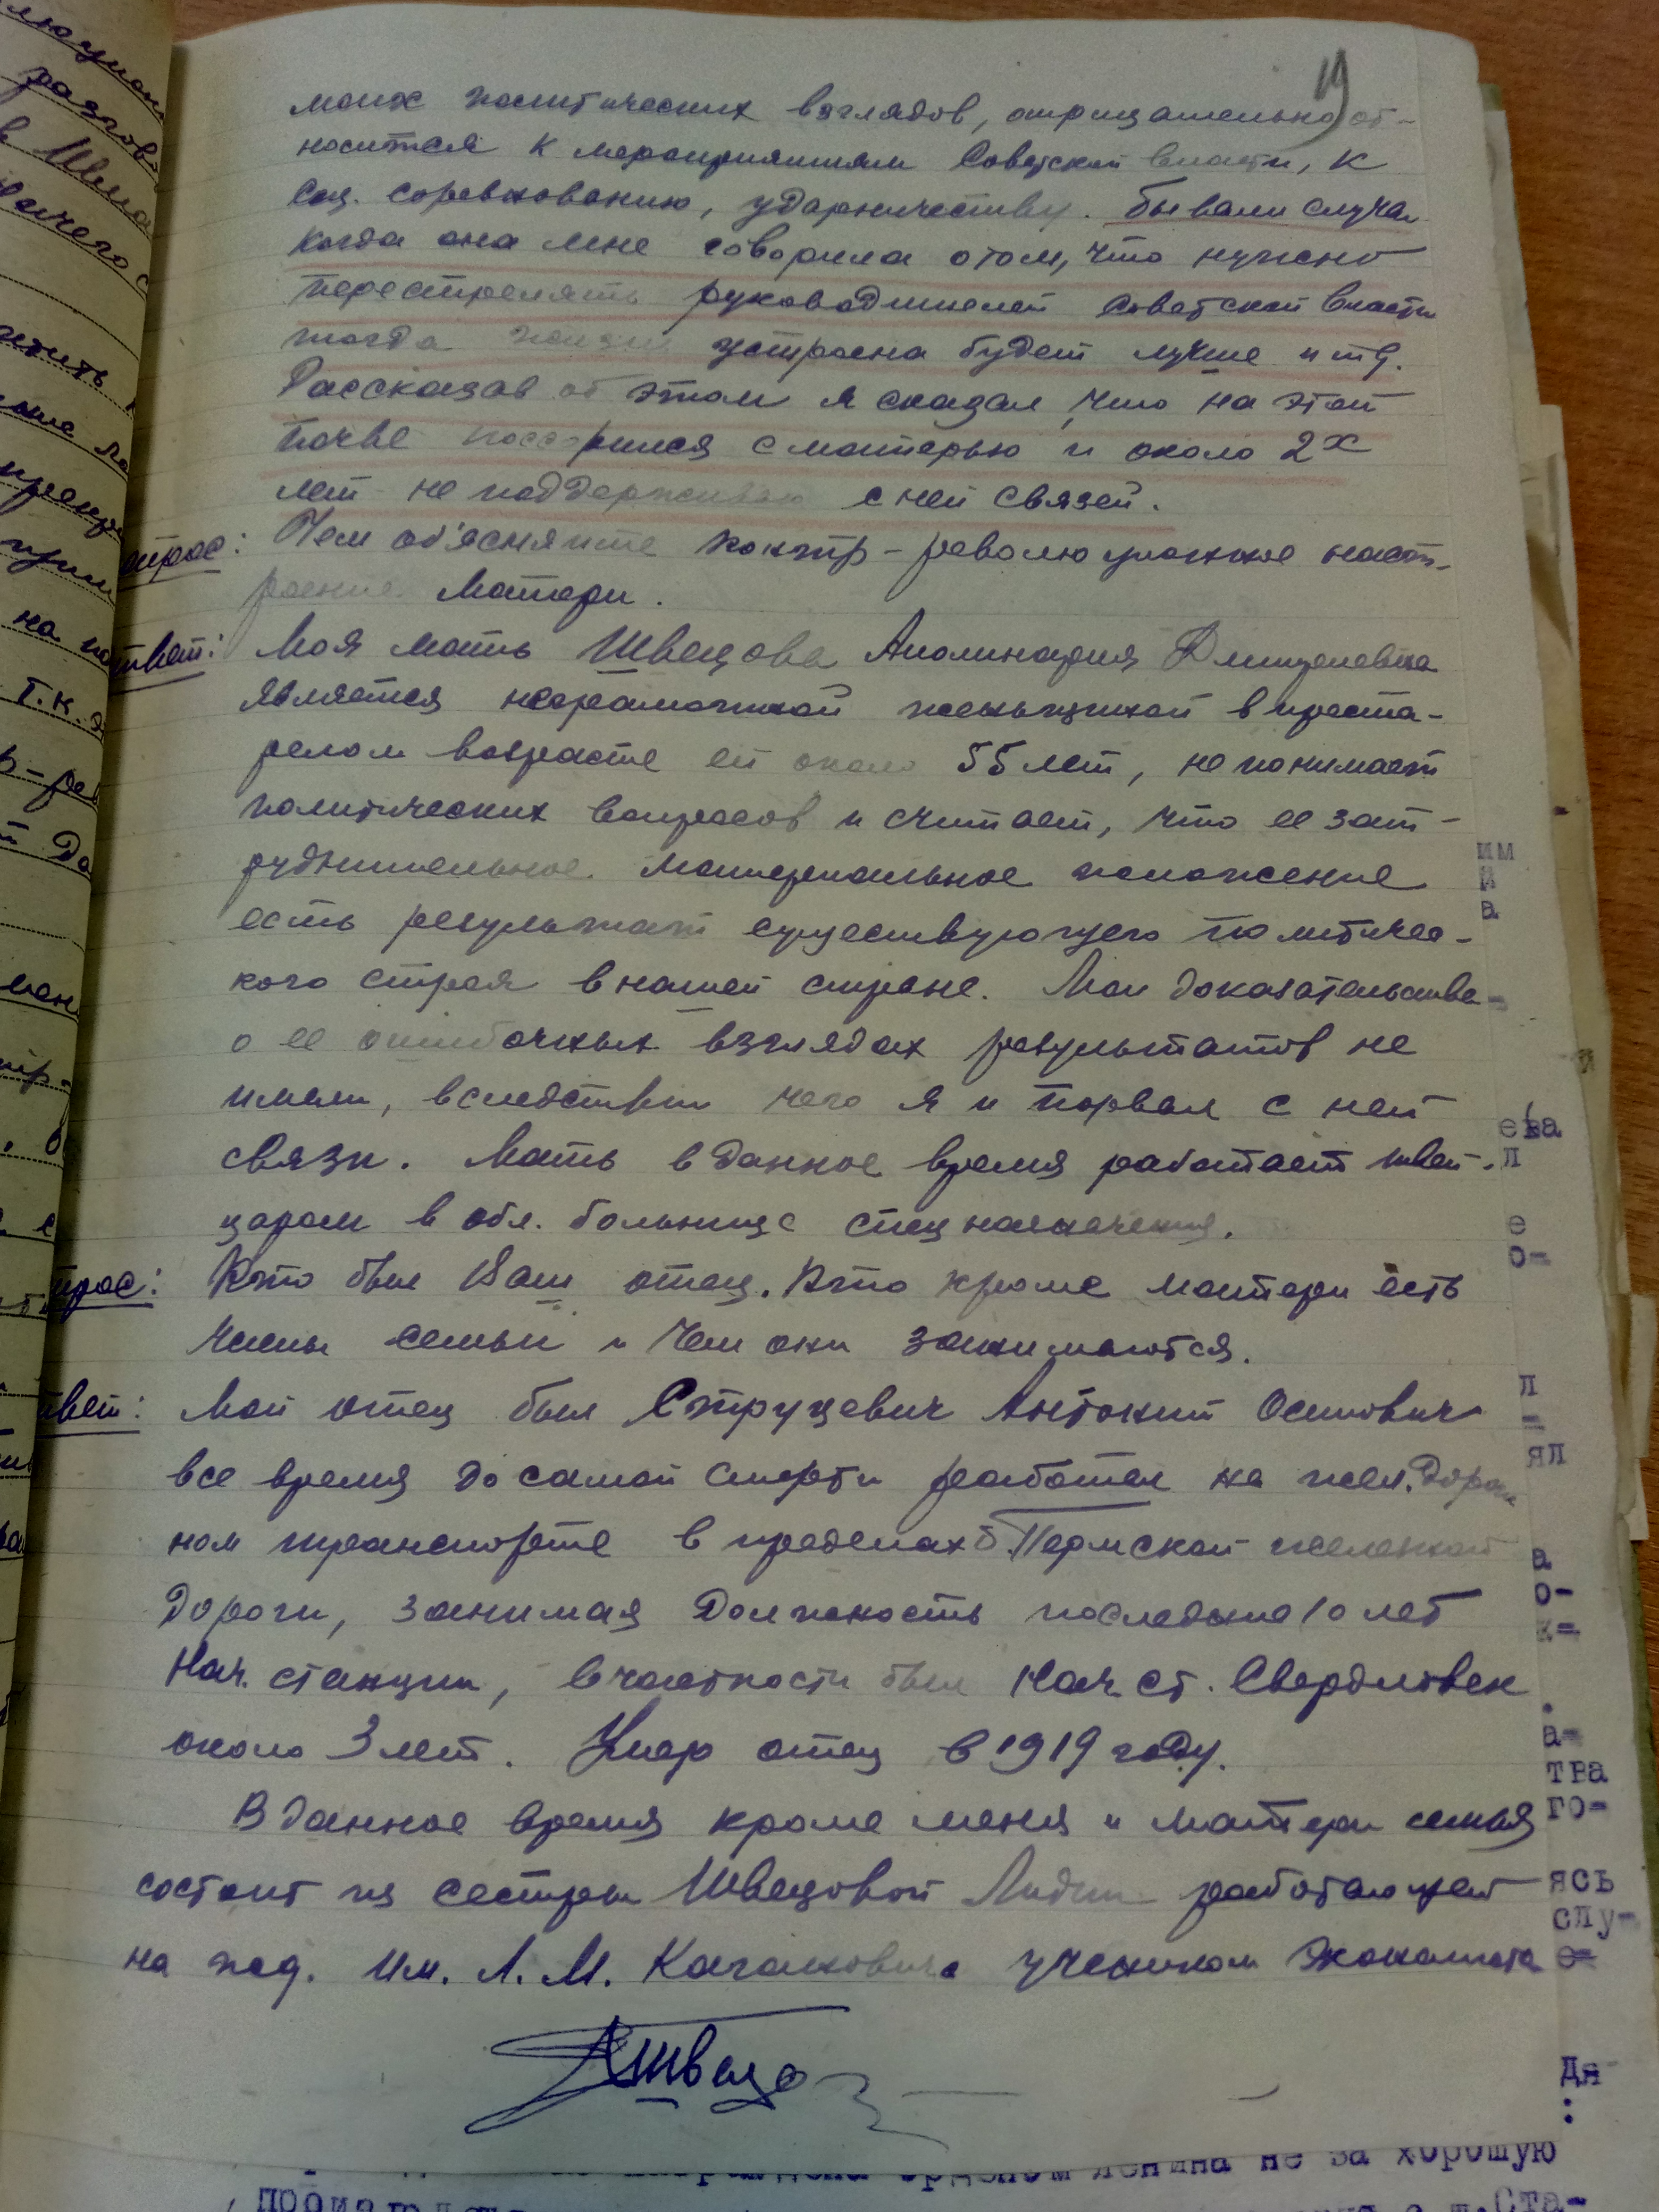 19
моих политических взглядов, отрицательно от-
носится к мероприятиям Советской власти, к
соц. соревнованию, ударничеству. Бывали случаи
когда она мне говорила о том, что нужно
перестрелять руководителей Советской власти
тогда жизнь устроена будет лучше и т.д.
Рассказав об этом я сказал, что на этой
почве поссорился с матерью и около 2х
лет не поддерживаю с ней связей.
опрос: Чем об'ясняите контр-революционное наст-
роение матери.
твет: Моя мать Швецова Аполинария
является неграмотной женьщиной в преста-
релом возрасте ей около 55 лет, не понимает
политических вопросов и считает, что ее зат-
руднительное материальное положение
есть результат существующего политичес-
кого строя в нашей стране. Мои доказательства
о ее ошибочных взглядах результатов не
имели, вследствии чего я и порвал с ней
связи. Мать в данное время работает швей-
царом в обл. больнице спец назначения.
прос: Кто был Ваш отец. Кто кроме матери есть
члены семьи и чем они занимаются.
твет: Мой отец был Струцевич Антоний Осипович
все время до самой смерти работал на жел. дорож
ном транспорте в пределах б. Пермской железной
дороги, занимая должность последние 10 лет
Нач. станции, в частности был Нач. ст. Свердловск
около 3 лет. Умер отец в 1919 году.
В данное время кроме меня и матери семья
состоит из сестры Швецовой Лидии работающей
на жд. им. Л. М. Кагановича учеником экономиста
Швецо